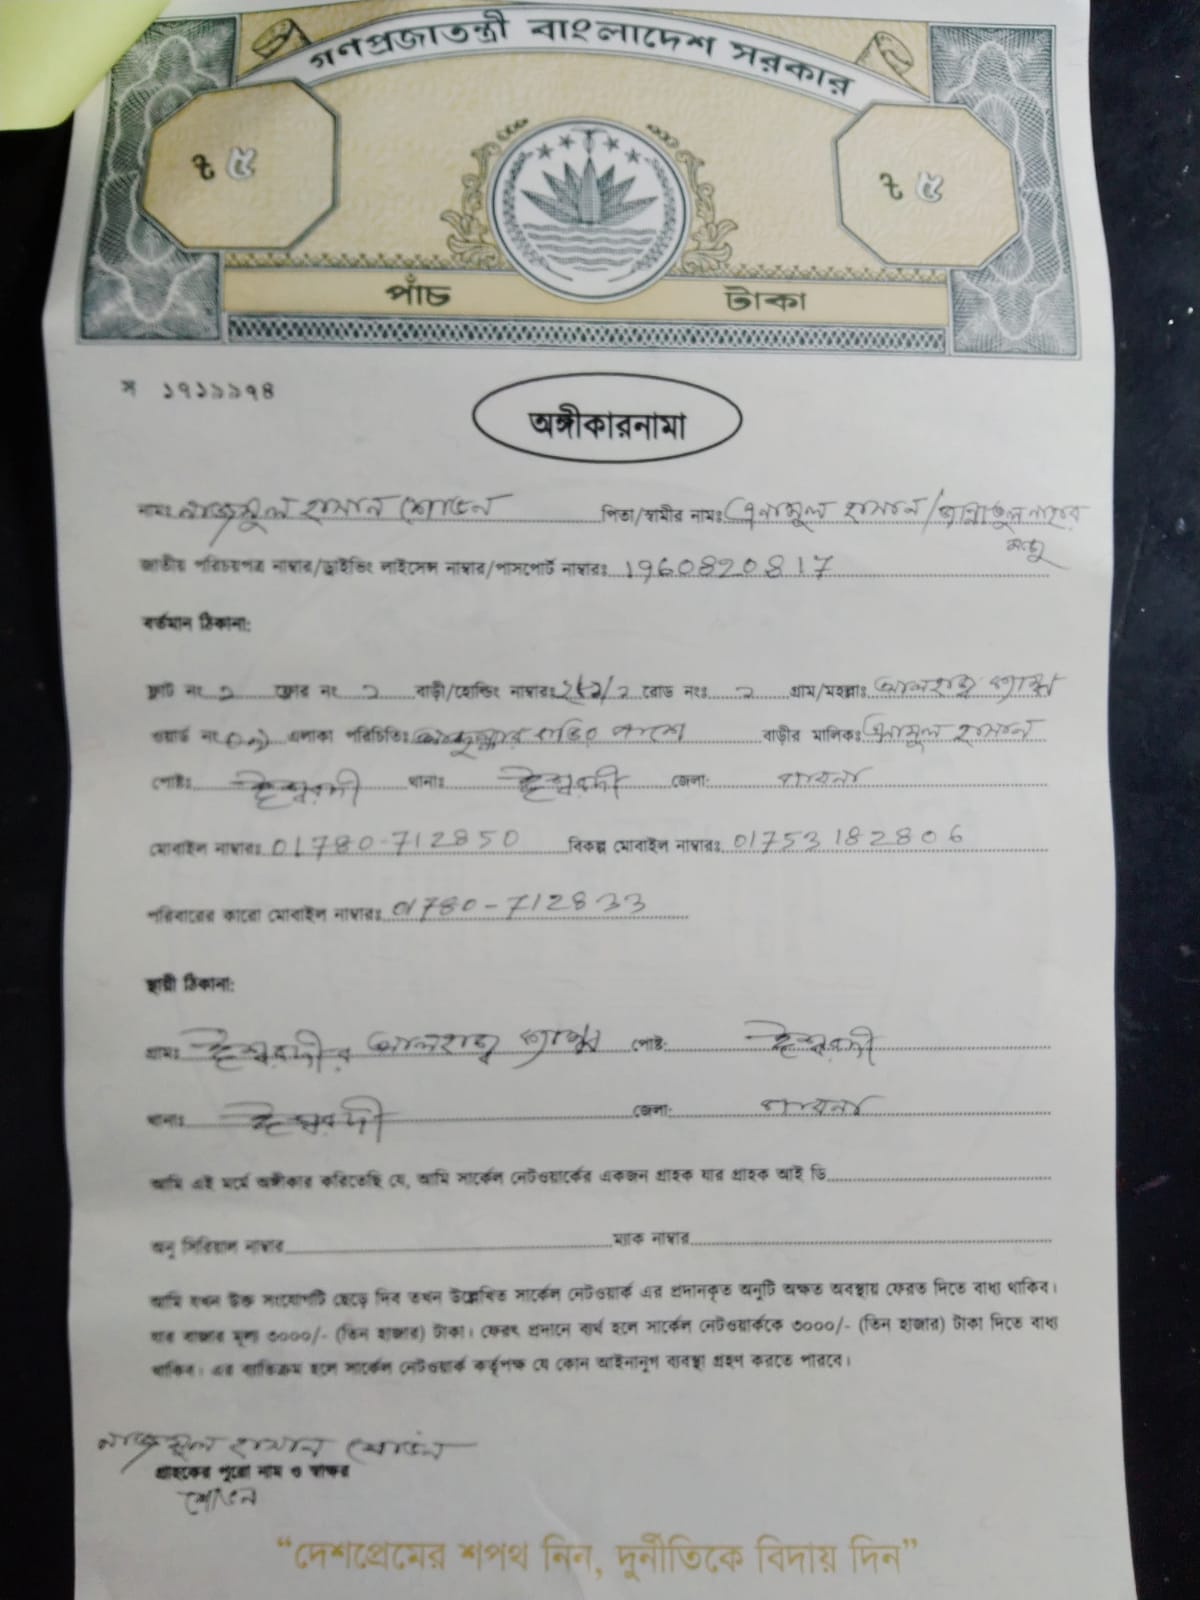 গণপ্রজাতন্ত্রী বাংলাদেশ সরকার
৳ ৫ ৳ ৫
পাঁচ টাকা
স ১৭১১১৭৪
অঙ্গীকারনামা
নামঃ নাজমুল হাসান শোভন পিতা/স্বামীর নামঃ এনামুল হাসান/জান্নাতুল নাহার
মঞ্জু
জাতীয় পরিচয়পত্র নাম্বার/ড্রাইভিং লাইসেন্স নাম্বার/পাসপোর্ট নাম্বারঃ 1960820817
বর্তমান ঠিকানা:
ফ্লাট নং ১ ফ্লোর নং ১ বাড়ী/হোল্ডিং নাম্বারঃ রোড নংঃ ১ গ্রাম/মহল্লাঃ আলহাজ্ব ক্যাম্প
ওয়ার্ড নং ০১ এলাকা পরিচিতিঃ পাশে বাড়ীর মালিকঃ এনামুল হাসান
পোষ্টঃ ঈশ্বরদী থানাঃ ঈশ্বরদী জেলা: পাবনা
মোবাইল নাম্বারঃ 01780-712850 বিকল্প মোবাইল নাম্বারঃ 01753182806
পরিবারের কারো মোবাইল নাম্বারঃ 01780-712833
স্থায়ী ঠিকানা:
গ্রামঃ ঈশ্বরদীর আলহাজ্ব ক্যাম্প পোষ্ট: ঈশ্বরদী
থানাঃ ঈশ্বরদী জেলা: পাবনা
আমি এই মর্মে অঙ্গীকার করিতেছি যে, আমি সার্কেল নেটওয়ার্কের একজন গ্রাহক যার গ্রাহক আই ডি
অনু সিরিয়াল নাম্বার ম্যাক নাম্বার
আমি যখন উক্ত সংযোগটি ছেড়ে দিব তখন উল্লেখিত সার্কেল নেটওয়ার্ক এর প্রদানকৃত অনুটি অক্ষত অবস্থায় ফেরত দিতে বাধ্য থাকিব।
যার বাজার মূল্য ৩০০০/- (তিন হাজার) টাকা। ফেরৎ প্রদানে ব্যর্থ হলে সার্কেল নেটওয়ার্ককে ৩০০০/- (তিন হাজার) টাকা দিতে বাধ্য
থাকিব। এর ব্যতিক্রম হলে সার্কেল নেটওয়ার্ক কর্তৃপক্ষ যে কোন আইনানুগ ব্যবস্থা গ্রহণ করতে পারবে।
নাজমুল হাসান শোভন
গ্রাহকের পুরো নাম ও স্বাক্ষর
শোভন
“দেশপ্রেমের শপথ নিন, দুর্নীতিকে বিদায় দিন”